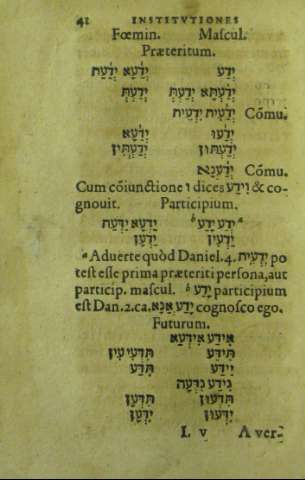 42 INSTITVTIONES
Fœmin. Mascul.
Præteritum.
יְדַע יְדַֿעָא יְדַֿעַת
יְדַֿעְתָּא יְדַֿעְתְּ יְדַֿעְתְּ
יְדַֿעִית יִדְעֵית Cõmu.
יְדַֿעוּ יְדַֿעָא
יְדַֿעְתּוּן יְדַֿעְתִּין
יְדַֿעְנָא Cõmu.
Cum cõiunctione ו dices וִידַע & co-
gnouit. Participium.
יָדַע יָדֵע יָדְעָא יָדְעַת
יָדְעִין יָדְעָן
a Aduerte quòd Daniel. 4. יִדְעֵית po
test esse prima præteriti persona, aut
particip. mascul. b יָדַע participium
est Dan. 2. ca. יָדַע אֲנָא cognosco ego.
Futurum.
אִידַע אִידְּעָא
תִּידַע תִּדְּעִין
יִידַע תִּדַּע
נִידַע נִדְּעָה
תִּדְּעוּן תִּדְּעָן
יִדְּעוּן יִדְּעָן
I. v A ver.